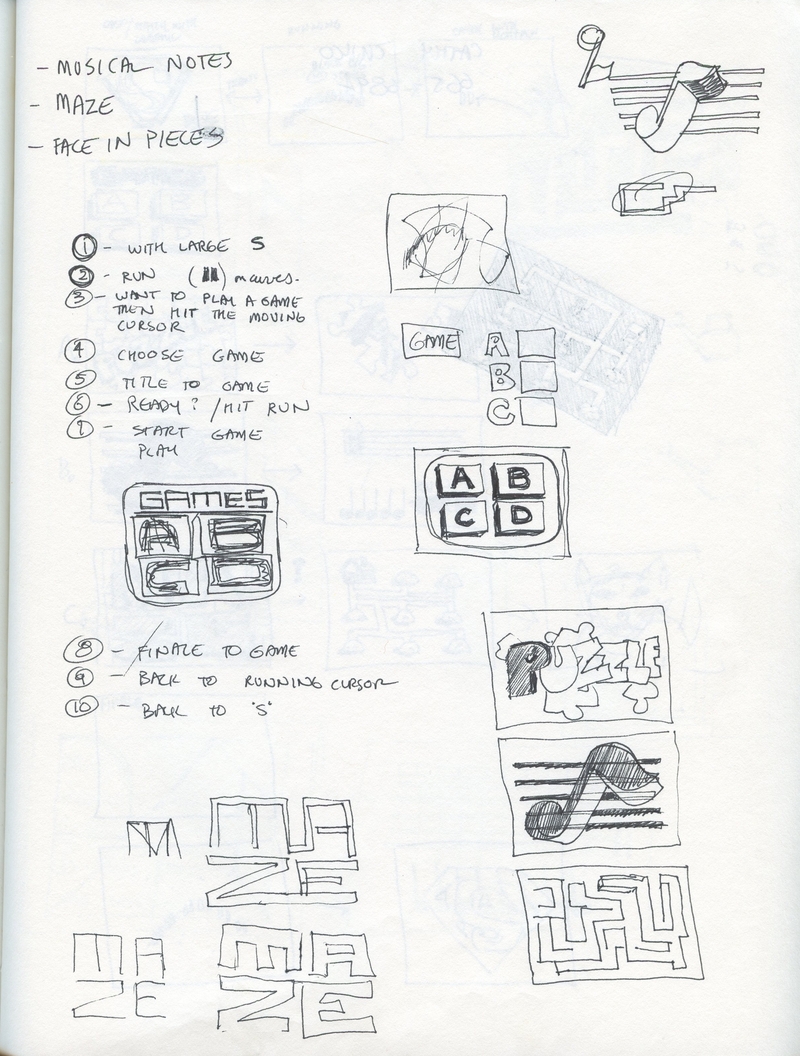 - MUSICAL NOTES
- MAZE
- FACE IN PIECES
① - WITH LARGE S
② - RUN ( ) mauves.
③ - WANT TO PLAY A GAME
THEN HIT THE MOVING
CURSOR
④ CHOOSE GAME
⑤ TITLE TO GAME
⑥ - READY? / HIT RUN
⑦ - START GAME
PLAY
GAME
A
B
C
GAMES
A B
C D
A B
C D
⑧ - FINALE TO GAME
⑨ - BACK TO RUNNING CURSOR
⑩ - BACK TO "S"
PUZZLE
M
MA
ZE
MA
ZE
MA
ZE